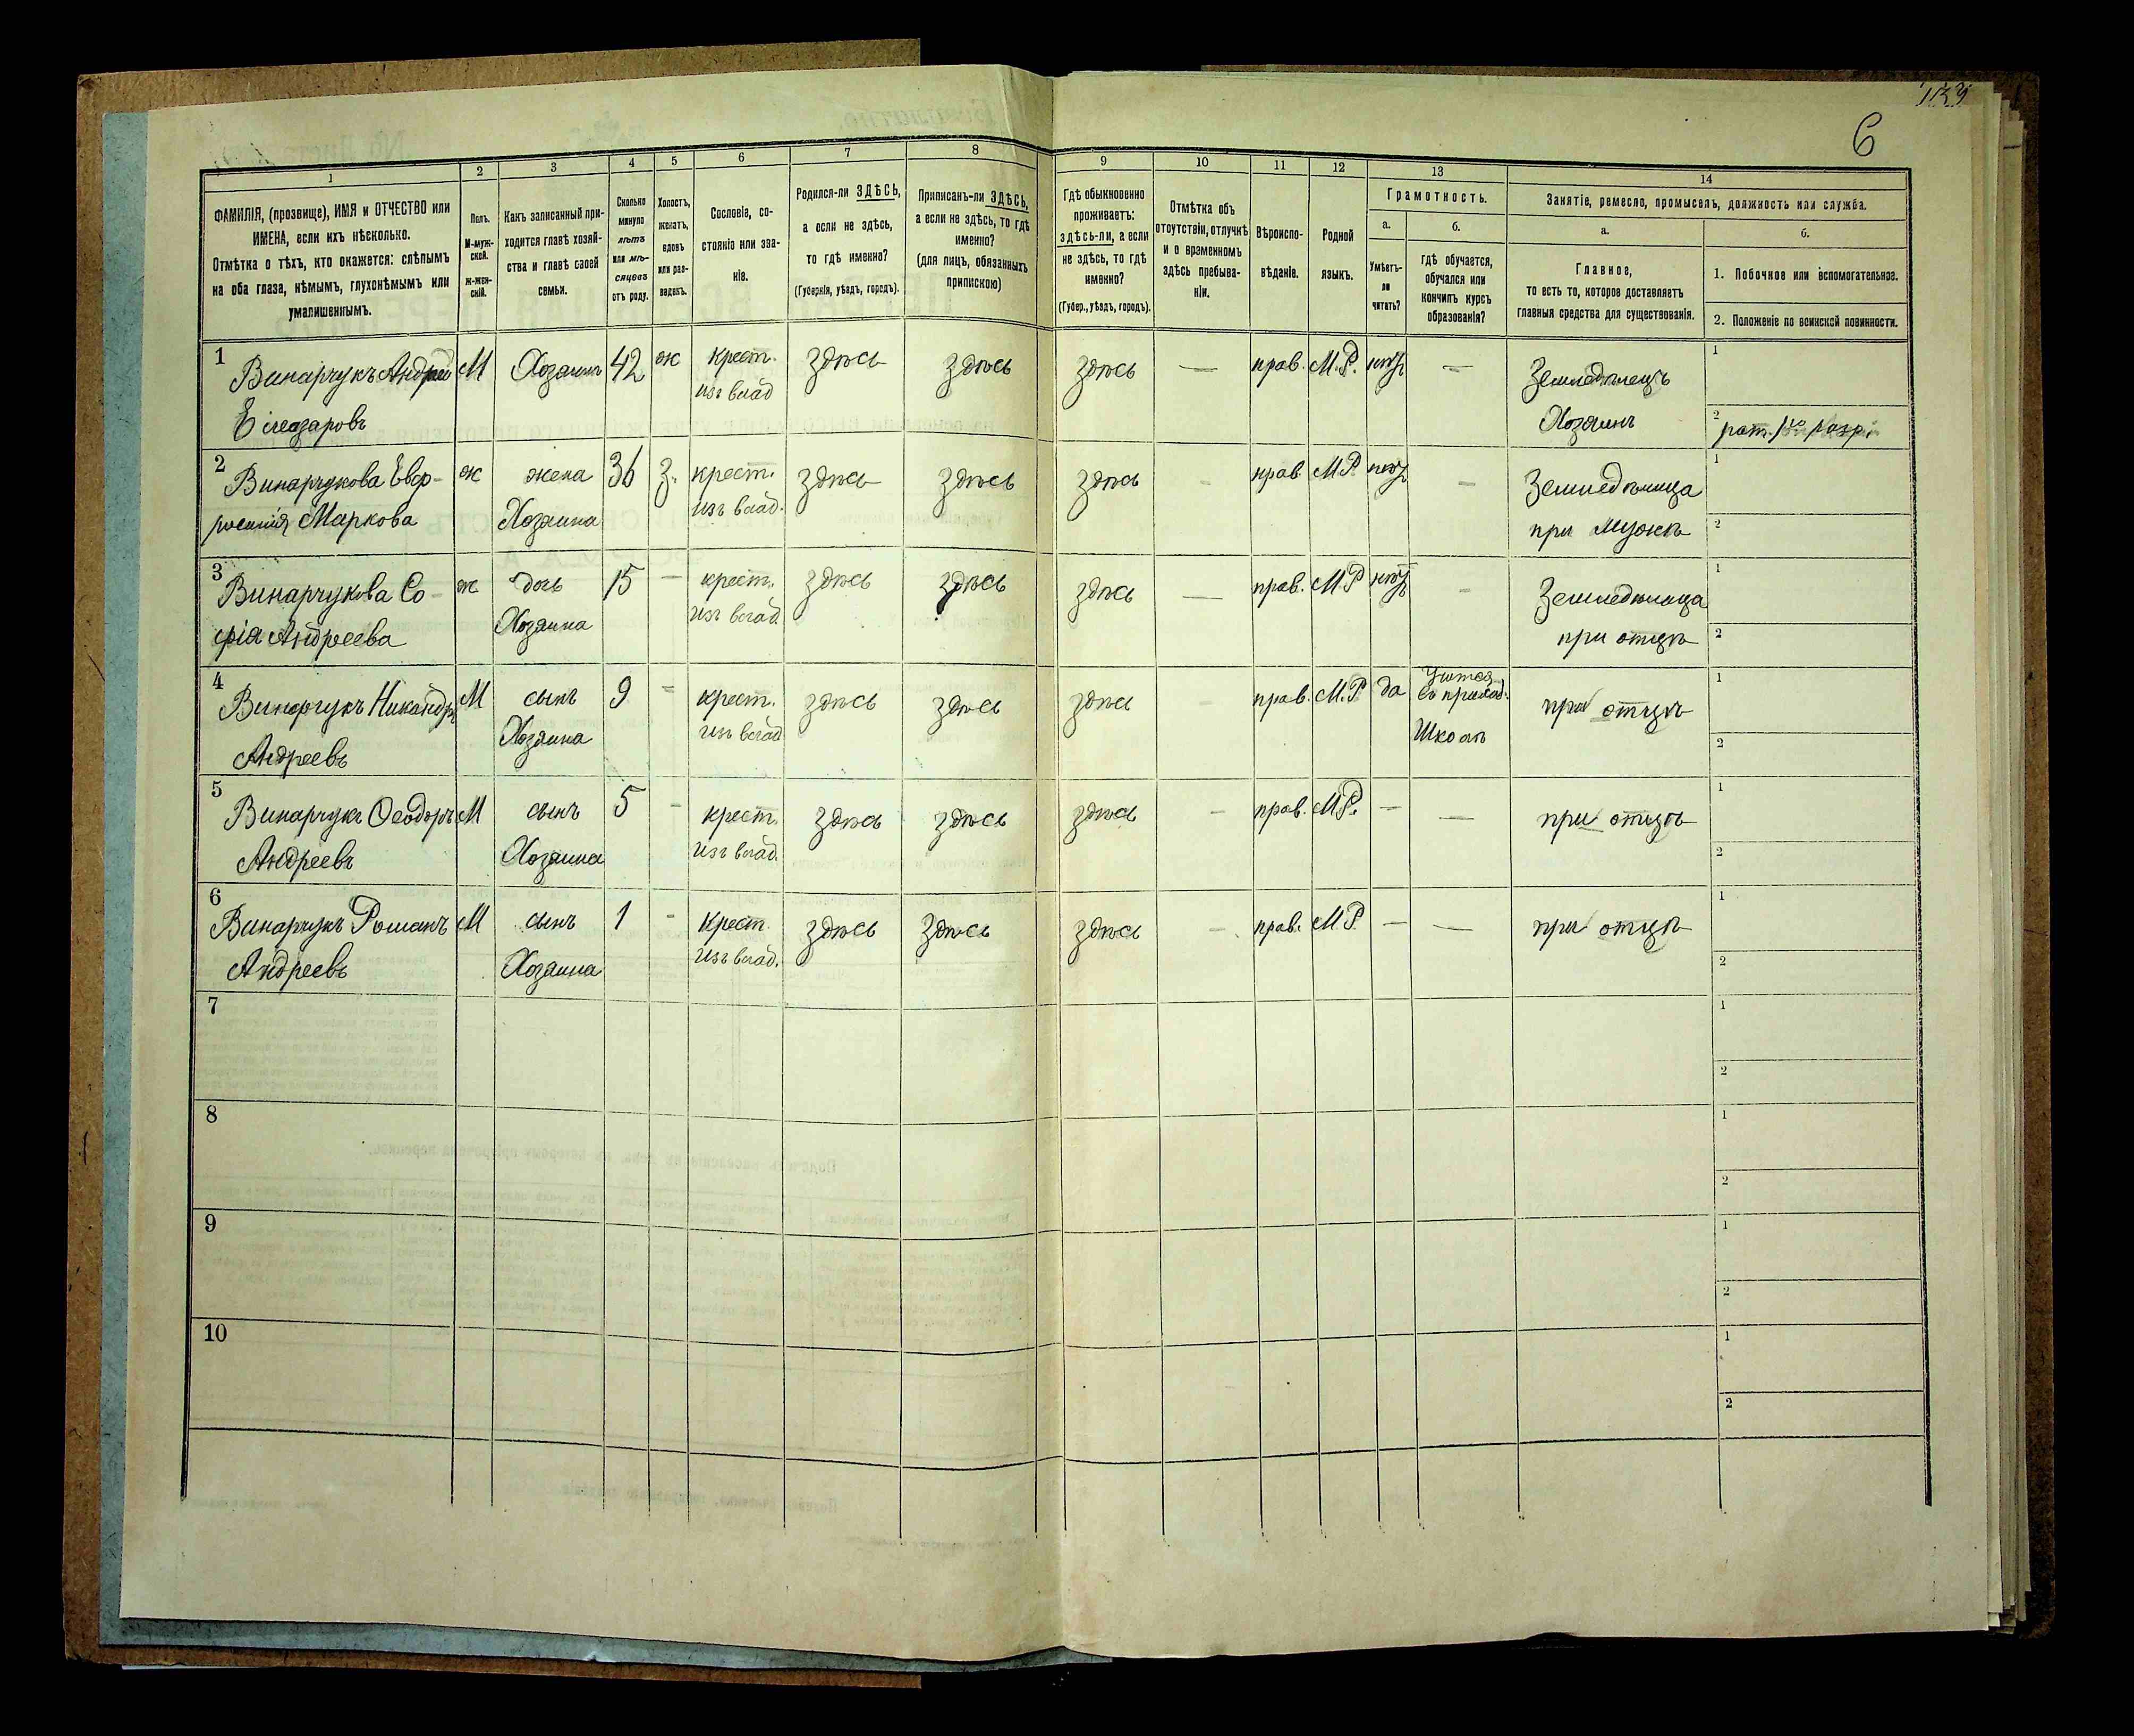 133
6
1
2
3
4
5
6
7
8
9
10
11
12
13
14
ФАМИЛІЯ, (прозвище), ИМЯ и ОТЧЕСТВО или
ИМЕНА, если ихъ нѣсколько.
Отмѣтка о тѣхъ, кто окажется: слѣпымъ
на оба глаза, нѣмымъ, глухонѣмымъ или
умалишеннымъ.
Полъ.
М-муж-
ской.
Ж-жен-
скій.
Какъ записанный при-
ходится главѣ хозяй-
ства и главѣ своей
семьи.
Сколько
минуло
лѣтъ
или мѣ-
сяцевъ
отъ роду.
Холостъ,
женатъ,
вдовъ
или раз-
веденъ.
Сословіе, со-
стояніе или зва-
ніе.
Родился-ли ЗДѢСЬ,
а если не здѣсь,
то гдѣ именно?
(Губернія, уѣздъ, городъ).
Приписанъ-ли ЗДѢСЬ,
а если не здѣсь, то гдѣ
именно?
(для лицъ, обязанныхъ
припискою)
Гдѣ обыкновенно
проживаетъ:
здѣсь-ли, а если
не здѣсь, то гдѣ
именно?
(Губер., уѣздъ, городъ).
Отмѣтка объ
отсутствіи, отлучкѣ
и о временномъ
здѣсь пребыва-
ніи.
Вѣроиспо-
вѣданіе.
Родной
языкъ.
Грамотность.
а.
Умѣетъ-
ли
читать?
б.
гдѣ обучается,
обучался или
кончилъ курсъ
образованія?
Занятіе, ремесло, промыселъ, должность или служба.
а.
Главное,
то есть то, которое доставляетъ
главныя средства для существованія.
б.
1. Побочное или вспомогательное.
2. Положеніе по воинской повинности.
1
Винарчукъ Андрей М Хозаинъ 42 ж крест. здѣсь здѣсь здѣсь — прав. М.Р. нѣтъ — Земледѣлецъ 1
изъ влад
Елеазаровъ Хозаинъ 2 рат. 1го разр.
2
Винарчукова Евф- ж жена 36 З. крест. здѣсь здѣсь здѣсь - прав. М.Р. нѣтъ — Земледѣлица 1
росинія Маркова Хозаина изъ влад. при мужѣ 2
3
Винарчукова Со- ж дочь 15 — крест. здѣсь здѣсь здѣсь — прав. М.Р нѣтъ - Земледѣлица 1
фія Андреева Хозаина изъ влад при отцѣ 2
4
Винарчукъ Никандръ М сынъ 9 - крест. здѣсь здѣсь здѣсь - прав. М.Р. да Учится 1
въ приход. при отцѣ
Хозаина изъ влад Школѣ
Андреевъ 2
5
Винарчукъ Ѳеодоръ М сынъ 5 - крест. здѣсь здѣсь здѣсь - прав. М.Р. — — при отцѣ 1
Андреевъ Хозаина изъ влад. 2
6
Винарчукъ Романъ М сынъ 1 - крест. здѣсь здѣсь здѣсь - прав. М.Р. — — при отцѣ 1
Андреевъ Хозаина изъ влад. 2
7 1
2
8 1
2
9 1
2
10 1
2